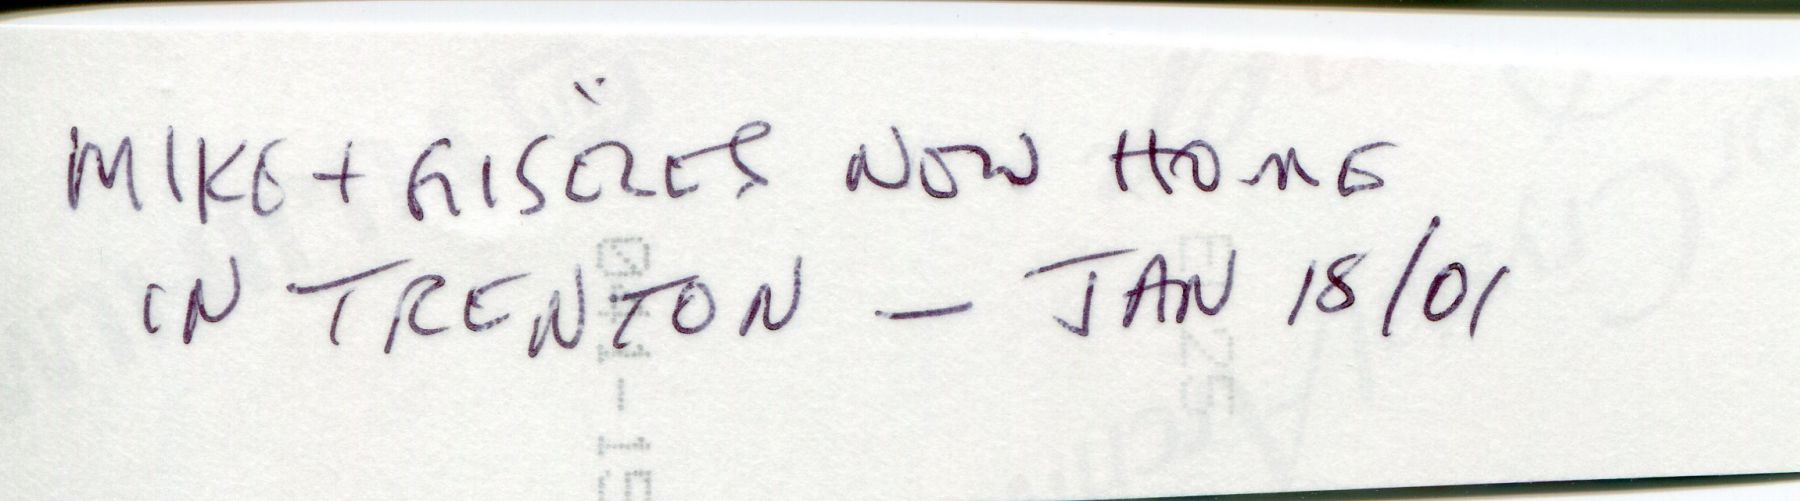 MIKE + GISÈLES NEW HOME
IN TRENTON — JAN 18/01